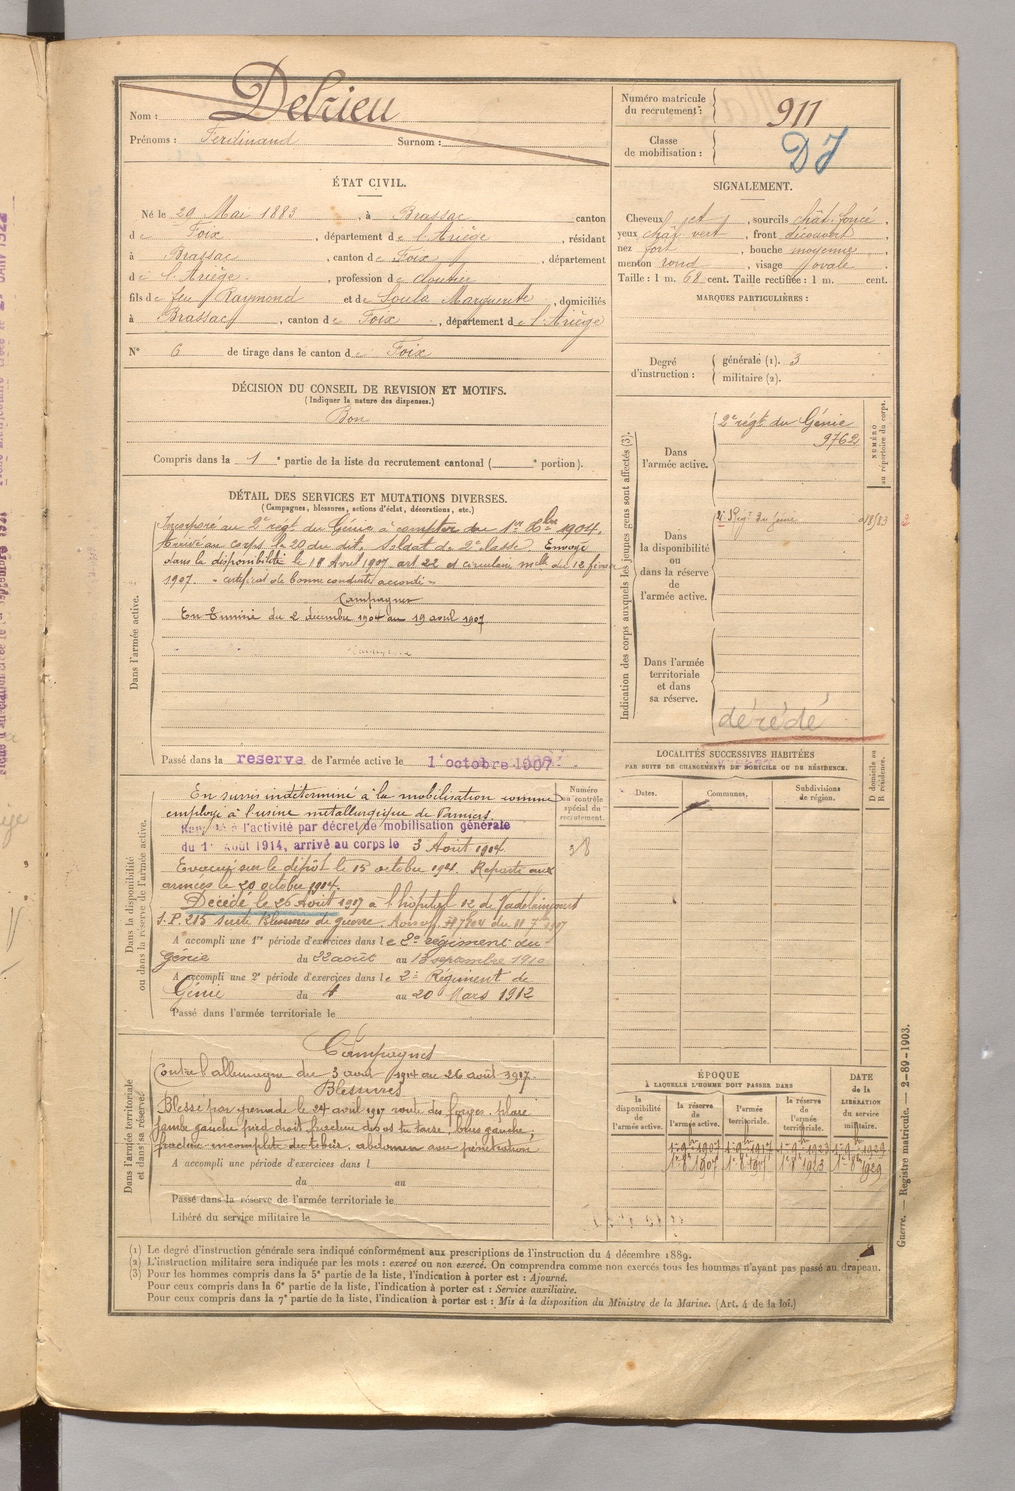 Nom : Delrieu
Prénoms : Ferdinand Surnom :
Numéro matricule du recrutement : 911
Classe de mobilisation : DJ
ÉTAT CIVIL.
Né le 29 Mai 1883, à Brassac canton
de Foix, département de l'Ariège, résidant
à Brassac, canton de Foix, département
de l'Ariège, profession de
fils de feu Raymond et de Soula Marguerite, domiciliés
à Brassac, canton de Foix, département de l'Ariège
N° 6 de tirage dans le canton de Foix
SIGNALEMENT.
Cheveux , sourcils chât. foncé,
yeux chât vert, front découvert,
nez fort, bouche moyenne,
menton rond, visage ovale
Taille : 1 m. 68 cent. Taille rectifiée : 1 m. cent.
MARQUES PARTICULIÈRES :
Degré d'instruction : générale (1). 3
militaire (2).
DÉCISION DU CONSEIL DE REVISION ET MOTIFS.
(Indiquer la nature des dispenses.)
Bon
Compris dans la 1e partie de la liste du recrutement cantonal ( e portion).
DÉTAIL DES SERVICES ET MUTATIONS DIVERSES.
(Campagnes, blessures, actions d'éclat, décorations, etc.)
Dans l'armée active.
Incorporé au 2e régt du Génie à compter du 1er 8bre 1904.
Arrivé au corps le 20 du dit, Soldat de 2e classe. Envoyé
dans la disponibilité le 18 Avril 1907 art 22 et circulaire melle du 12 février
1907. - certificat de bonne conduite accordé -
Campagnes
En Tunisie du 2 décembre 1904 au 19 avril 1907
Passé dans la réserve de l'armée active le 1er octobre 1907.
Indication des corps auxquels les jeunes gens sont affectés (3).
Dans l'armée active.
2e régt du Génie
9762
NUMÉRO au répertoire du corps.
Dans la disponibilité ou dans la réserve de l'armée active.
2e Régt du Génie
Dans l'armée territoriale et dans sa réserve.
décédé
LOCALITÉS SUCCESSIVES HABITÉES
PAR SUITE DE CHANGEMENTS DE DOMICILE OU DE RÉSIDENCE.
Dates. Communes. Subdivisions de région.
D domicile ou R résidence.
Dans la disponibilité ou dans la réserve de l'armée active.
Numéro au contrôle spécial du recrutement.
38
En sursis indéterminé à la mobilisation comme
employé à l'usine métallurgique de Pamiers.
Rappelé à l'activité par décret de mobilisation générale
du 1er août 1914, arrivé au corps le 3 Août 1914.
Evacué sur le dépôt le 15 octobre 1914. Reparti aux
armées le 20 octobre 1914.
Décédé le 26 Août 1917 à l'hôpital 12 de Vadelaincourt
S.P. 215 suite Blessures de guerre.
A accompli une 1re période d'exercices dans le 2e régiment du
Génie du 22 août au 13 septembre 1910
A accompli une 2e période d'exercices dans le 2e Régiment de
Génie du 4 au 20 Mars 1912
Passé dans l'armée territoriale le
Dans l'armée territoriale et dans sa réserve.
Campagnes
Contre l'allemagne du 3 août 1914 au 26 août 1917.
Blessures
Blessé par grenade le 24 avril 1917 route des forges, plaie
jambe gauche pied droit fracture des os du tarse, bras gauche,
fracture incomplète du tibia, abdomen avec pénétration
A accompli une période d'exercices dans l
du au
Passé dans la réserve de l'armée territoriale le
Libéré du service militaire le
ÉPOQUE
À LAQUELLE L'HOMME DOIT PASSER DANS
la disponibilité de l'armée active. la réserve de l'armée active. l'armée territoriale. la réserve de l'armée territoriale.
DATE de la LIBÉRATION du service militaire.
1er 8bre 1907 1er 8bre 1917 1er 8bre 1923 1er 8bre 1929
(1) Le degré d'instruction générale sera indiqué conformément aux prescriptions de l'instruction du 4 décembre 1889.
(2) L'instruction militaire sera indiquée par les mots : exercé ou non exercé. On comprendra comme non exercés tous les hommes n'ayant pas passé au drapeau.
(3) Pour les hommes compris dans la 5e partie de la liste, l'indication à porter est : Ajourné.
Pour ceux compris dans la 6e partie de la liste, l'indication à porter est : Service auxiliaire.
Pour ceux compris dans la 7e partie de la liste, l'indication à porter est : Mis à la disposition du Ministre de la Marine. (Art. 4 de la loi.)
Guerre. — Registre matricule. — 2-89-1903.